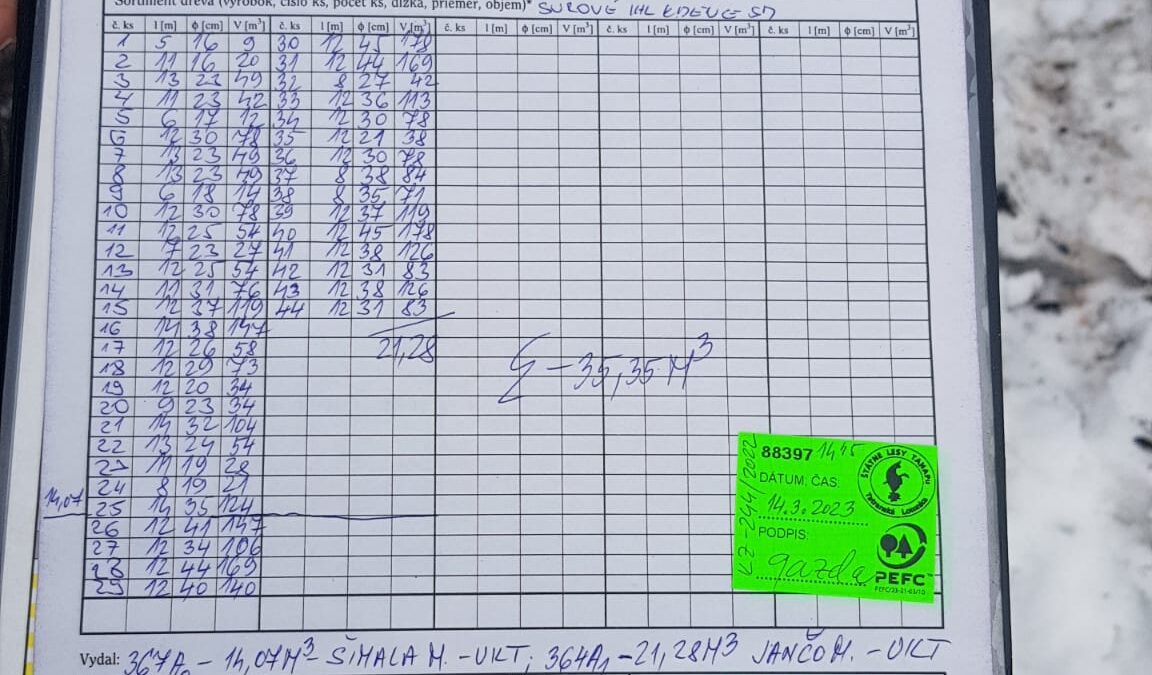 Sortiment dreva (výrobok, číslo ks, počet ks, dĺžka, priemer, objem)* SUROVÉ IHL KDEVCE SD
č. ks l [m] ϕ [cm] V [m³] č. ks l [m] ϕ [cm] V [m³] č. ks l [m] ϕ [cm] V [m³] č. ks l [m] ϕ [cm] V [m³] č. ks l [m] ϕ [cm] V [m³]
1 5 16 9 30 12 45 178
2 11 16 20 31 12 44 169
3 13 23 49 32 8 27 42
4 11 23 42 33 12 36 113
5 6 17 12 34 12 30 78
6 12 30 78 35 12 21 38
7 13 23 49 36 12 30 78
8 13 23 49 37 8 38 84
9 6 18 14 38 8 35 71
10 12 30 78 39 12 37 119
11 12 25 54 40 12 45 178
12 7 23 27 41 12 38 126
13 12 25 54 42 12 31 83
14 11 31 76 43 12 38 126
15 12 37 119 44 12 31 83
16 14 38 147
17 12 26 58 21,28
18 12 29 73 Σ - 35,35 M³
19 12 20 34
20 9 23 34
21 14 32 104
22 13 24 54
23 11 19 28
24 8 19 21
14,07
25 14 35 124
26 12 41 147
27 12 34 106
28 12 44 169
29 12 40 140
88397 1445
ŠTÁTNE LESY TANAPu
Tatranská Lomnica
DÁTUM: ČAS:
14.3.2023
PODPIS:
gazda
PEFC™
PEFC/23-21-03/10
KZ-244/2022
Vydal: 367A₀ - 14,07M³ - ŠIMALA M. - UKT; 364A₁ - 21,28M³ JANČO M. - UKT